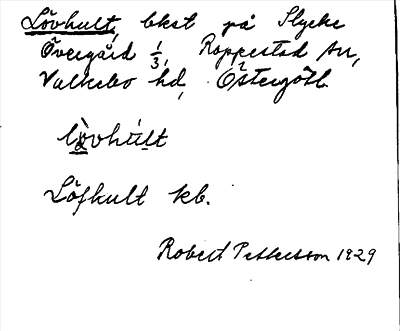 Lövhult, lkst på Slycke
Övergård 1/3, Rappestad sn,
Valkebo hd, Östergötl.
lo̠vhul̠t
Löfkult kb.
Robert Pettersson 1929